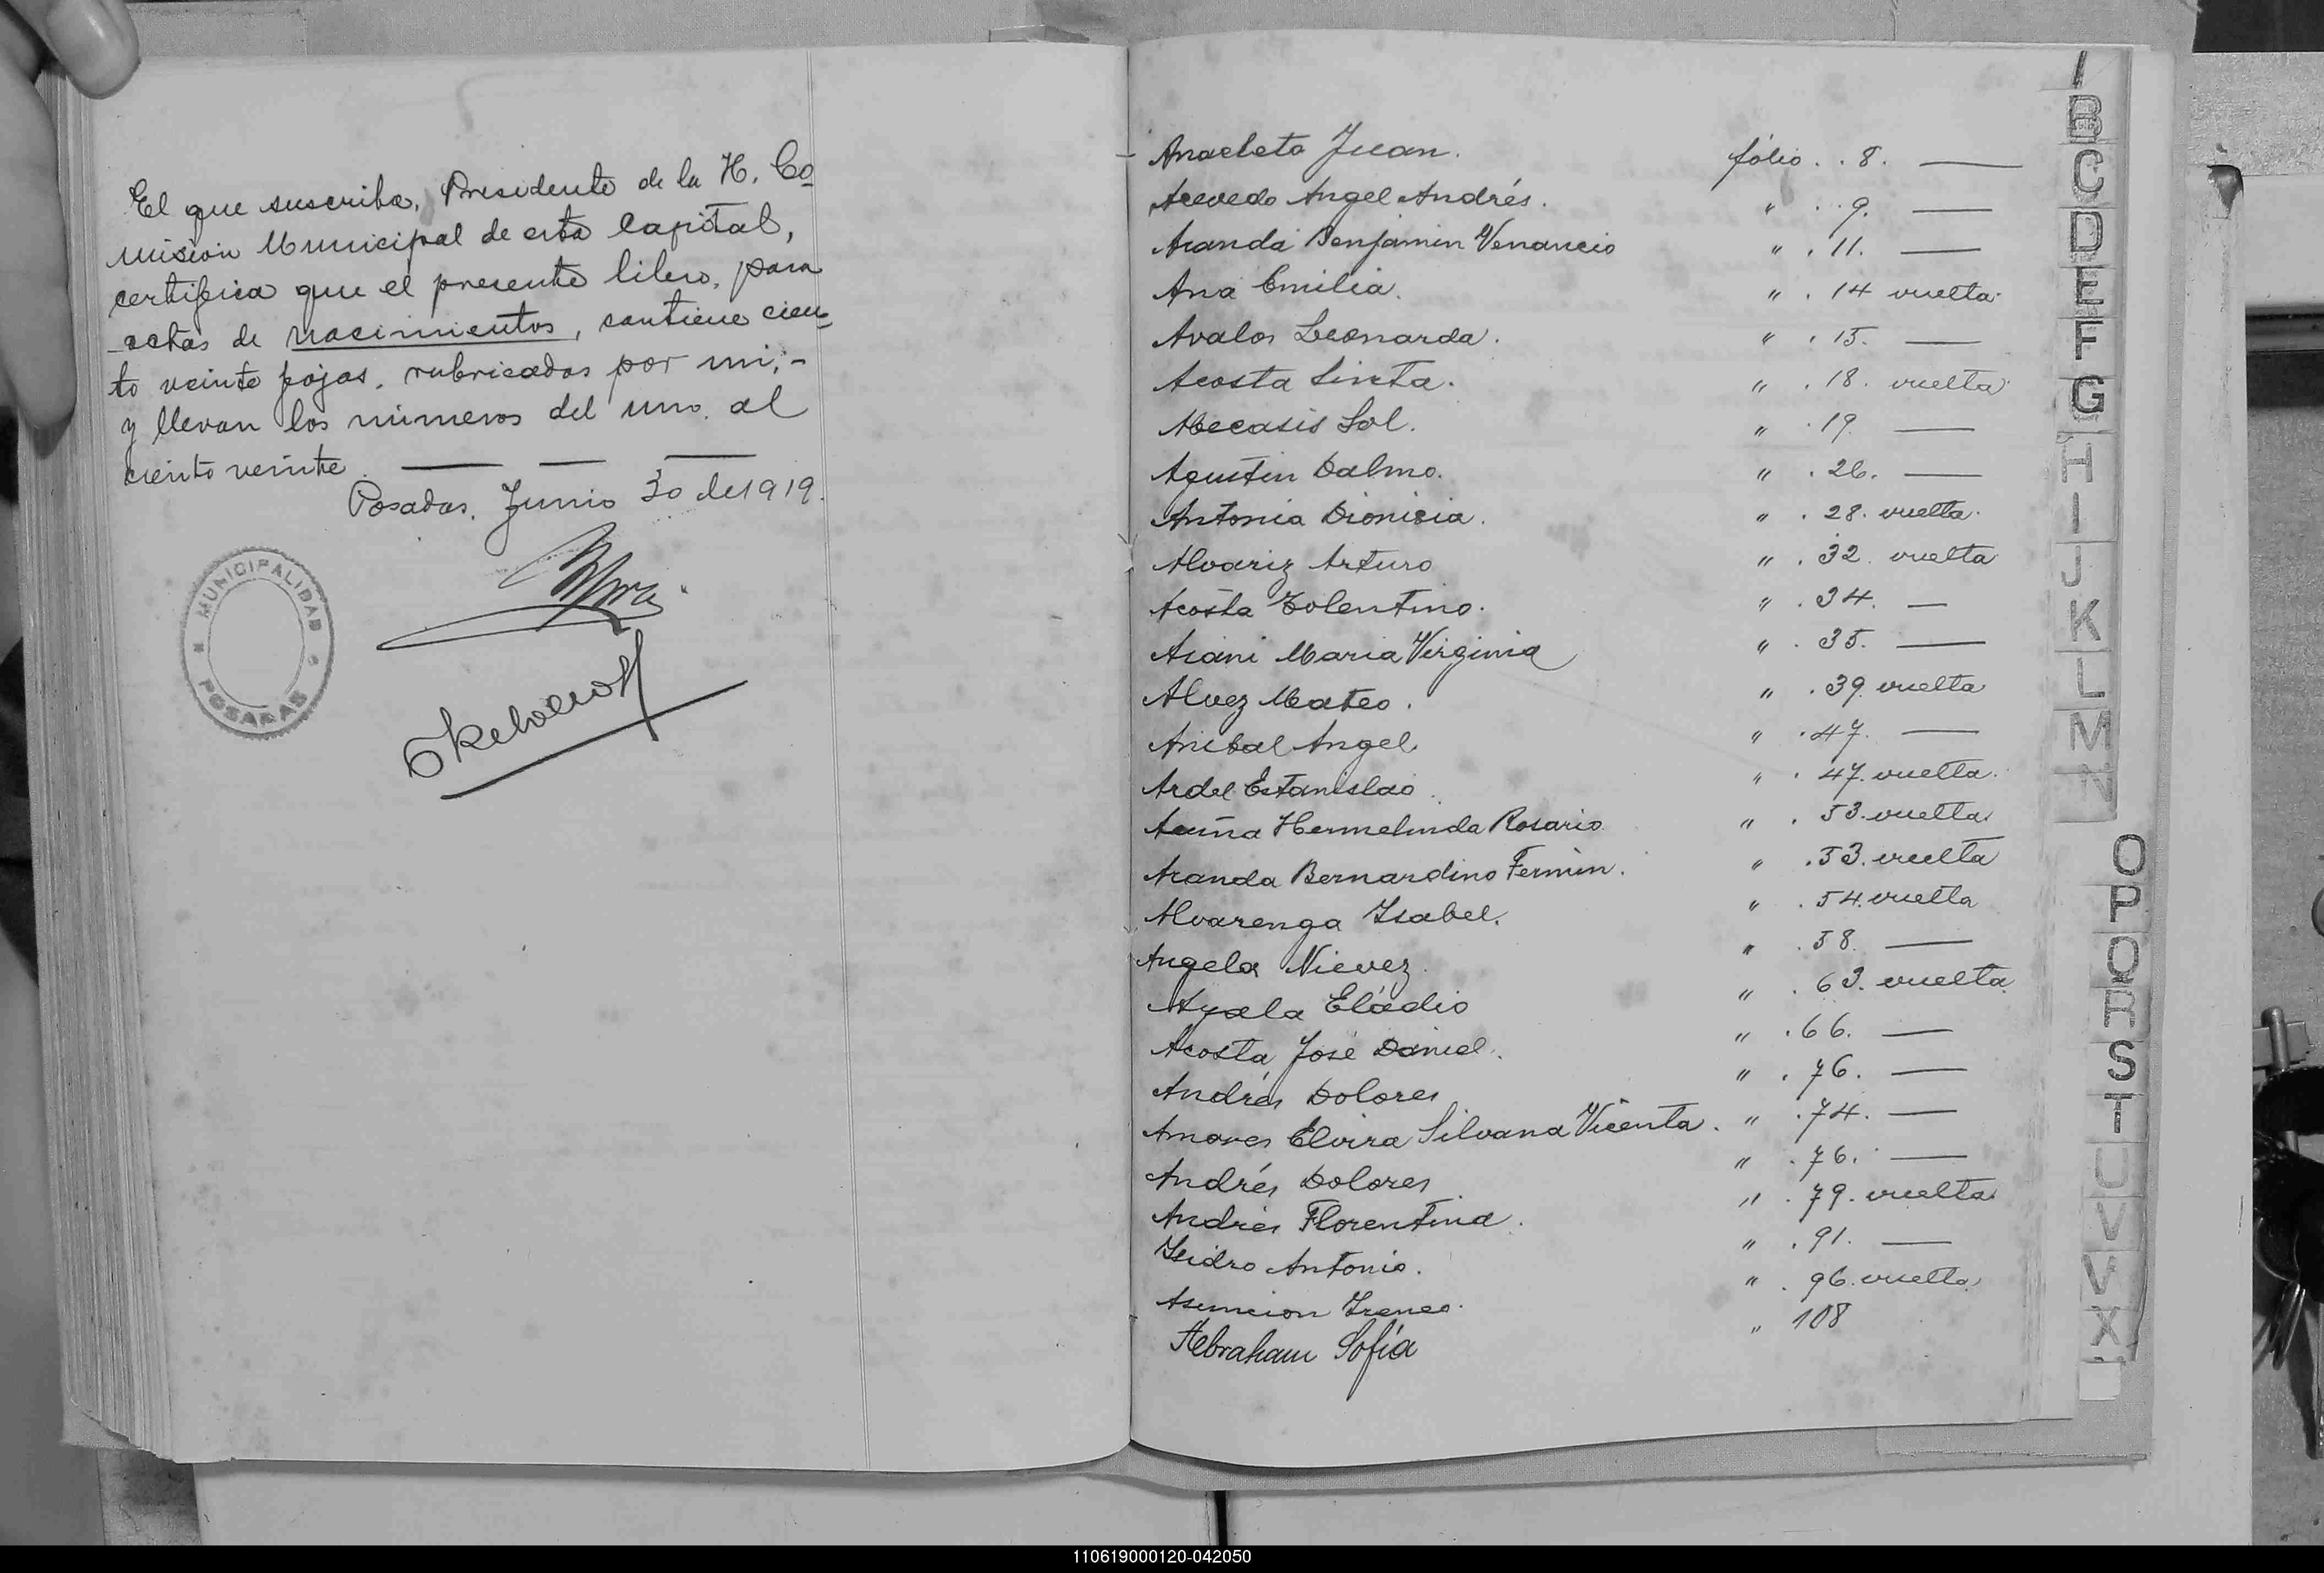 El que suscribe, Presidente de la H. Co
mision Municipal de esta Capital,
certifica que el presente libro, para
actas de nacimientos, contiene cien-
to veinte fojas, rubricadas por mi;-
y llevan los números del uno al
ciento veinte.
Posadas, Junio 30 de 1919.
MUNICIPALIDAD
POSADAS
Anacleto Juan. folio . . 8. —
Acevedo Angel Andrés. " . . 9. —
Aranda Benjamin Venancio " . 11. —
Ana Emilia. " . 14 vuelta.
Avalos Leonarda. " . 15. —
Acosta Sixta. " . 18. vuelta
Abecasis Sol. " . 19. —
Agustin Dalmo. " . 26. —
Antonia Dionisia. " . 28. vuelta.
Alvariz Arturo " . 32. vuelta
Acosta Tolentino. " . 34. —
Asani Maria Virginia " . 35. —
Alvez Mateo. " . 39. vuelta
Anibal Angel. " . 47. —
Ardel Estanislao. " . 47. vuelta.
Acuña Hermelinda Rosario " . 53. vuelta
Aranda Bernardino Fermin. " . 53. vuelta
Alvarenga Isabel. " . 54. vuelta
Angela Nievez. " . 58. —
Ayala Eládio " . 63. vuelta
Acosta José Daniel. " . 66. —
Andrés Dolores " . 76. —
Amores Elvira Silvana Vicenta. " . 74. —
Andrés Dolores " . 76. —
Andrés Florentina. " . 79. vuelta
Isidro Antonio. " . 91. —
Asuncion Ireneo. " . 96. vuelta
Abraham Sofía " 108
B
C
D
E
F
G
H
I
J
K
L
M
N
O
P
Q
R
S
T
U
V
V
X
110619000120-042050